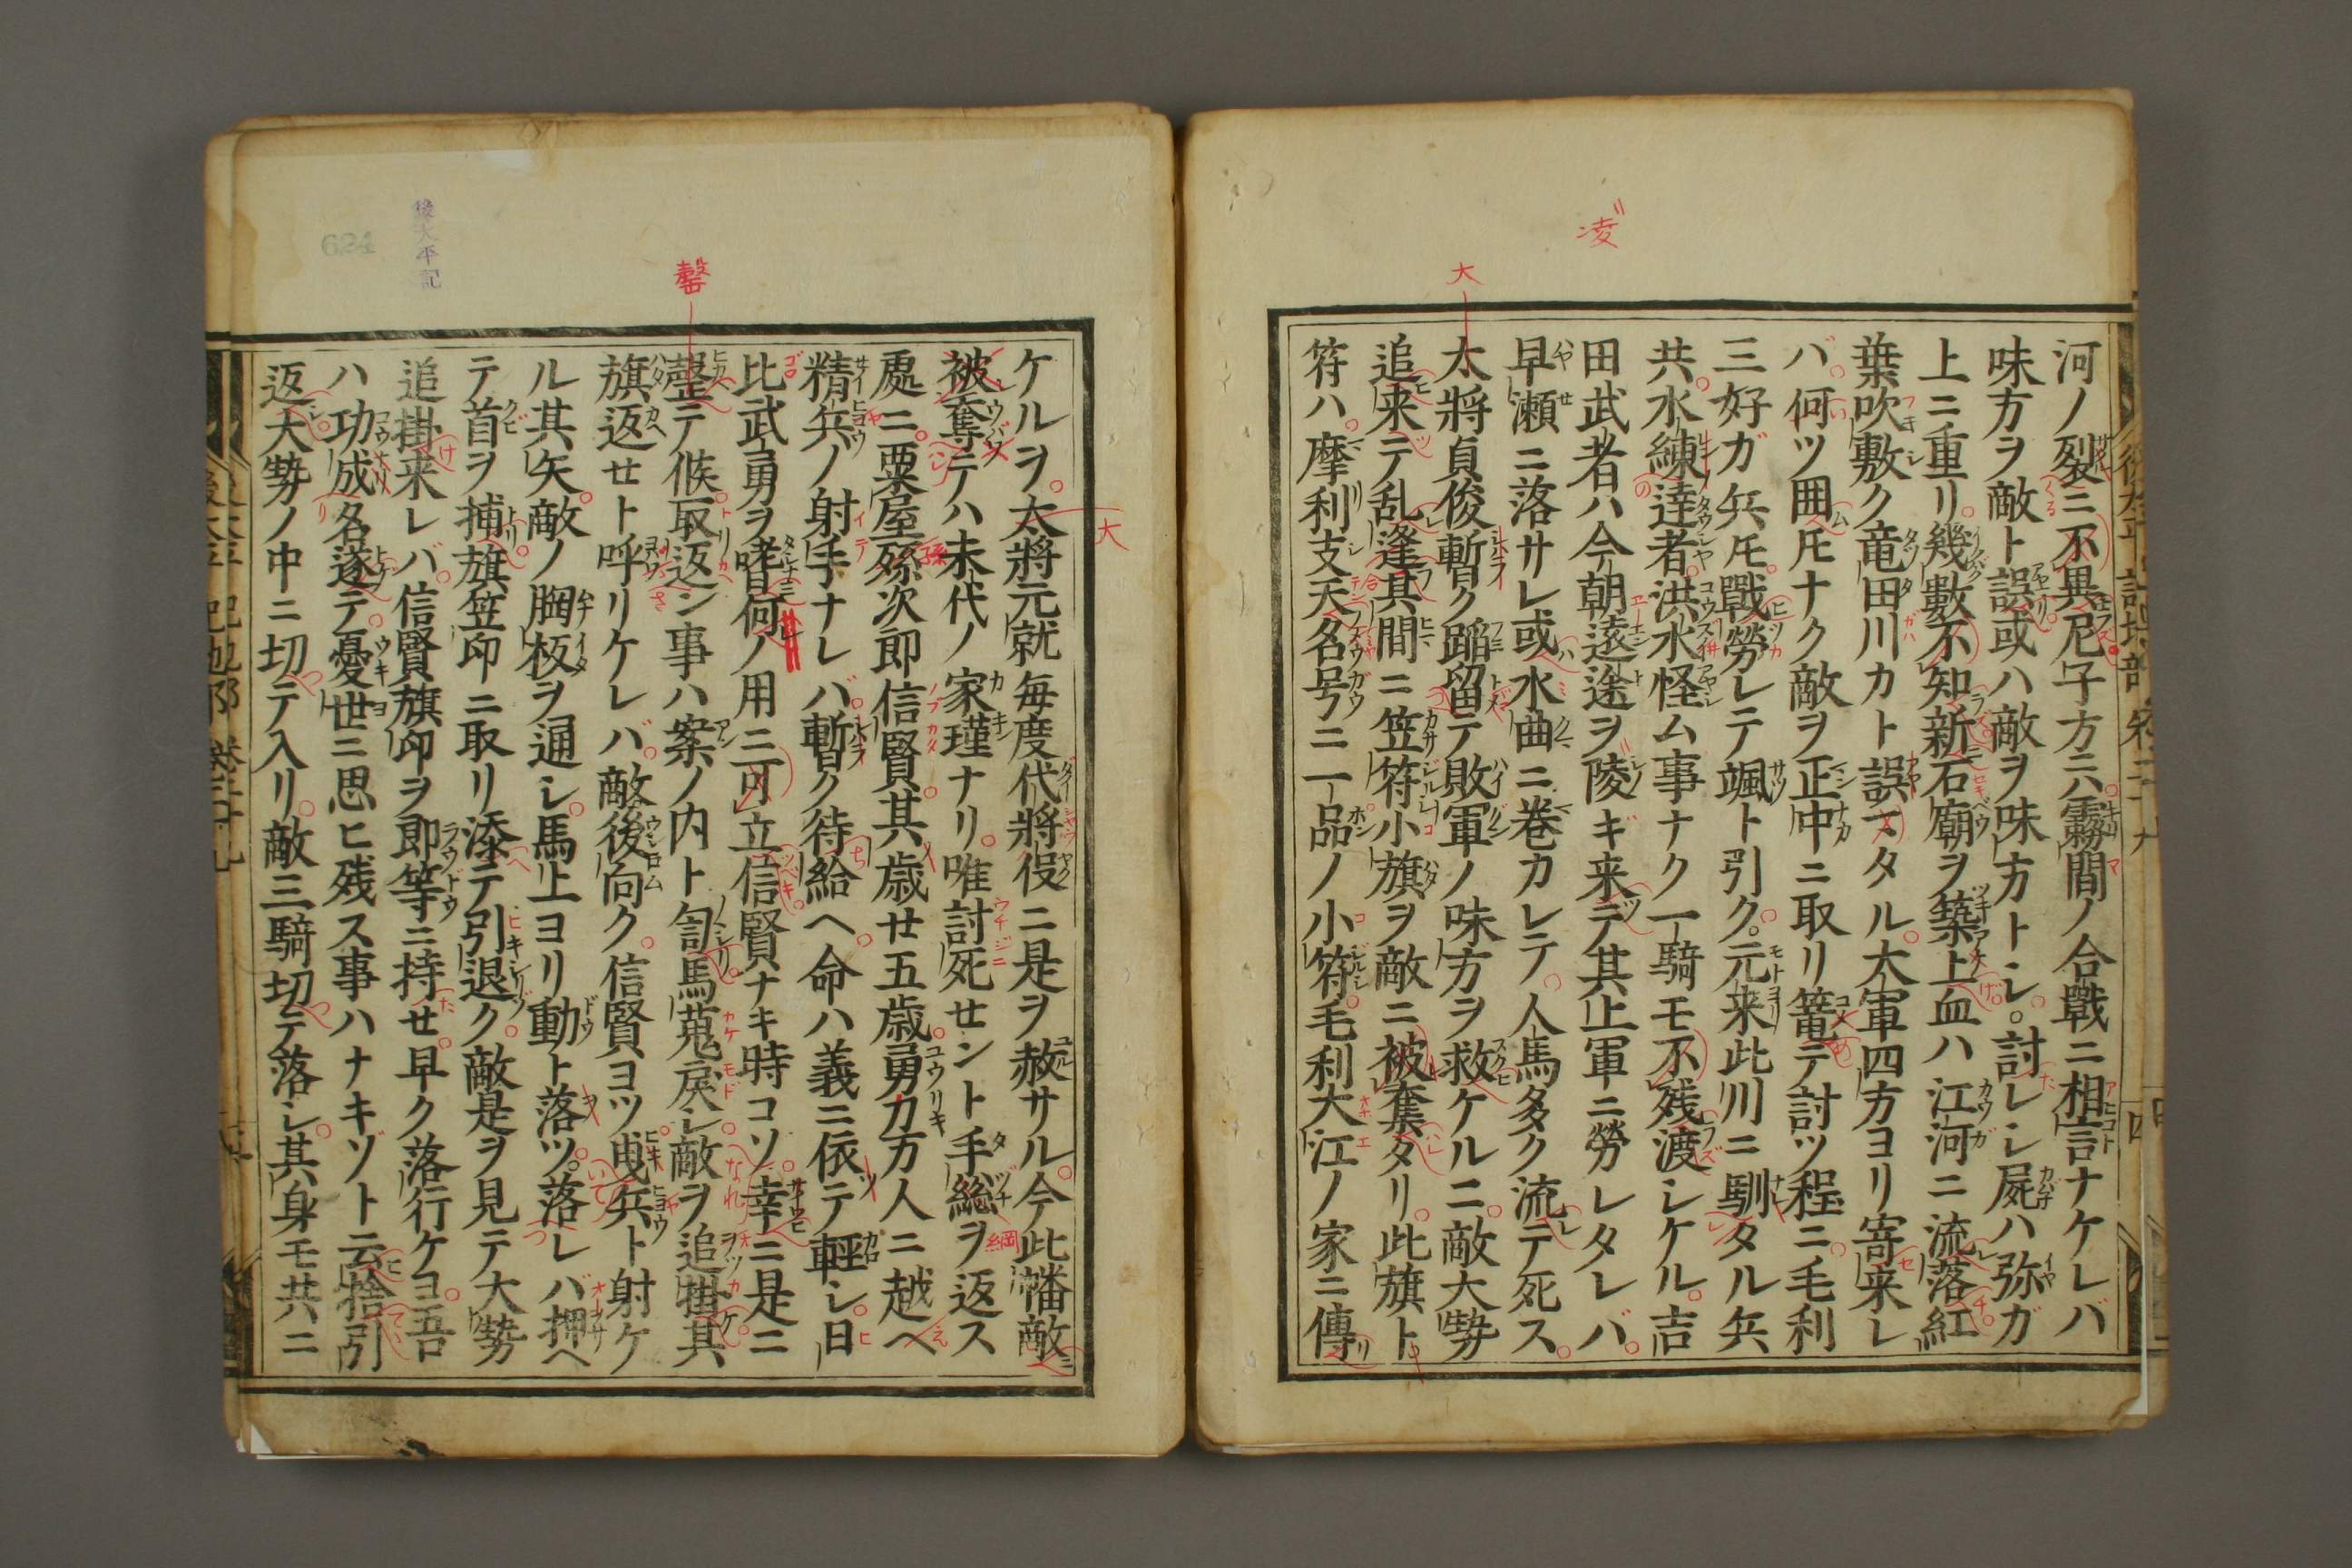 河ノ裂ニ不異尼子方ニハ霧間ノ合戰ニ相言ナケレバ
味方ヲ敵ト誤或ハ敵ヲ味方トシ。討レシ屍ハ弥ガ
上ニ重リ幾數不知新石廟ヲ築上血ハ江河ニ流落紅
葉吹敷ク竜田川カト誤マタル。大軍四方ヨリ寄来レ
バ何ツ囲ム𪜈ナク敵ヲ正中ニ取リ篭テ討ツ程ニ毛利
三好ガ兵𪜈戰勞レテ颯ト引ク。元来此川ニ馴タル兵
共水練達者洪水怪ム事ナク一騎モ不残渡シケル。吉
田武者ハ今朝遠途ヲ陵ギ来テ其上軍ニ勞レタレバ
早瀬ニ落サレ或水曲ニ巻カレテ人馬多ク流テ死ス
大將貞俊暫ク蹈留テ敗軍ノ味方ヲ救ケルニ敵大勢
追来テ乱逢其間ニ笠符小旗ヲ敵ニ被奪タリ此旗ト
符ハ摩利支天名号ニ一品ノ小符毛利大江ノ家ニ傳
ケルヲ大將元就毎度代將役ニ是ヲ赦サル今此幡敵
被奪テハ末代ノ家瑾ナリ唯討死セント手綱ヲ返ス
處ニ粟屋孫次郎信賢其歳廿五歳勇力万人ニ越ヘ
精兵ノ射手ナレバ暫ク待給ヘ命ハ義ニ依テ輕シ日
比武勇ヲ嗜何ノ用ニ可立信賢ナキ時コソ幸ニ是ニ
罄テ候取返ン事ハ案ノ内ト訇馬蒐戻シ敵ヲ追掛其
旗返セト呼リケレバ敵後向ク信賢ヨツ曳兵ト射ケ
ル其矢敵ノ胸板ヲ通シ馬上ヨリ動ト落ツ。落レバ押ヘ
テ首ヲ捕旗笠印ニ取リ添テ引退ク敵是ヲ見テ大勢
追掛来レバ信賢旗印ヲ郎等ニ持セ早ク落行ケヨ吾
ハ功成名遂テ憂世ニ思ヒ残ス事ハナキゾト云捨引
返大勢ノ中ニ切テ入リ敵三騎切テ落シ其身モ共ニ
凌
大
大
罄
後太平記
624